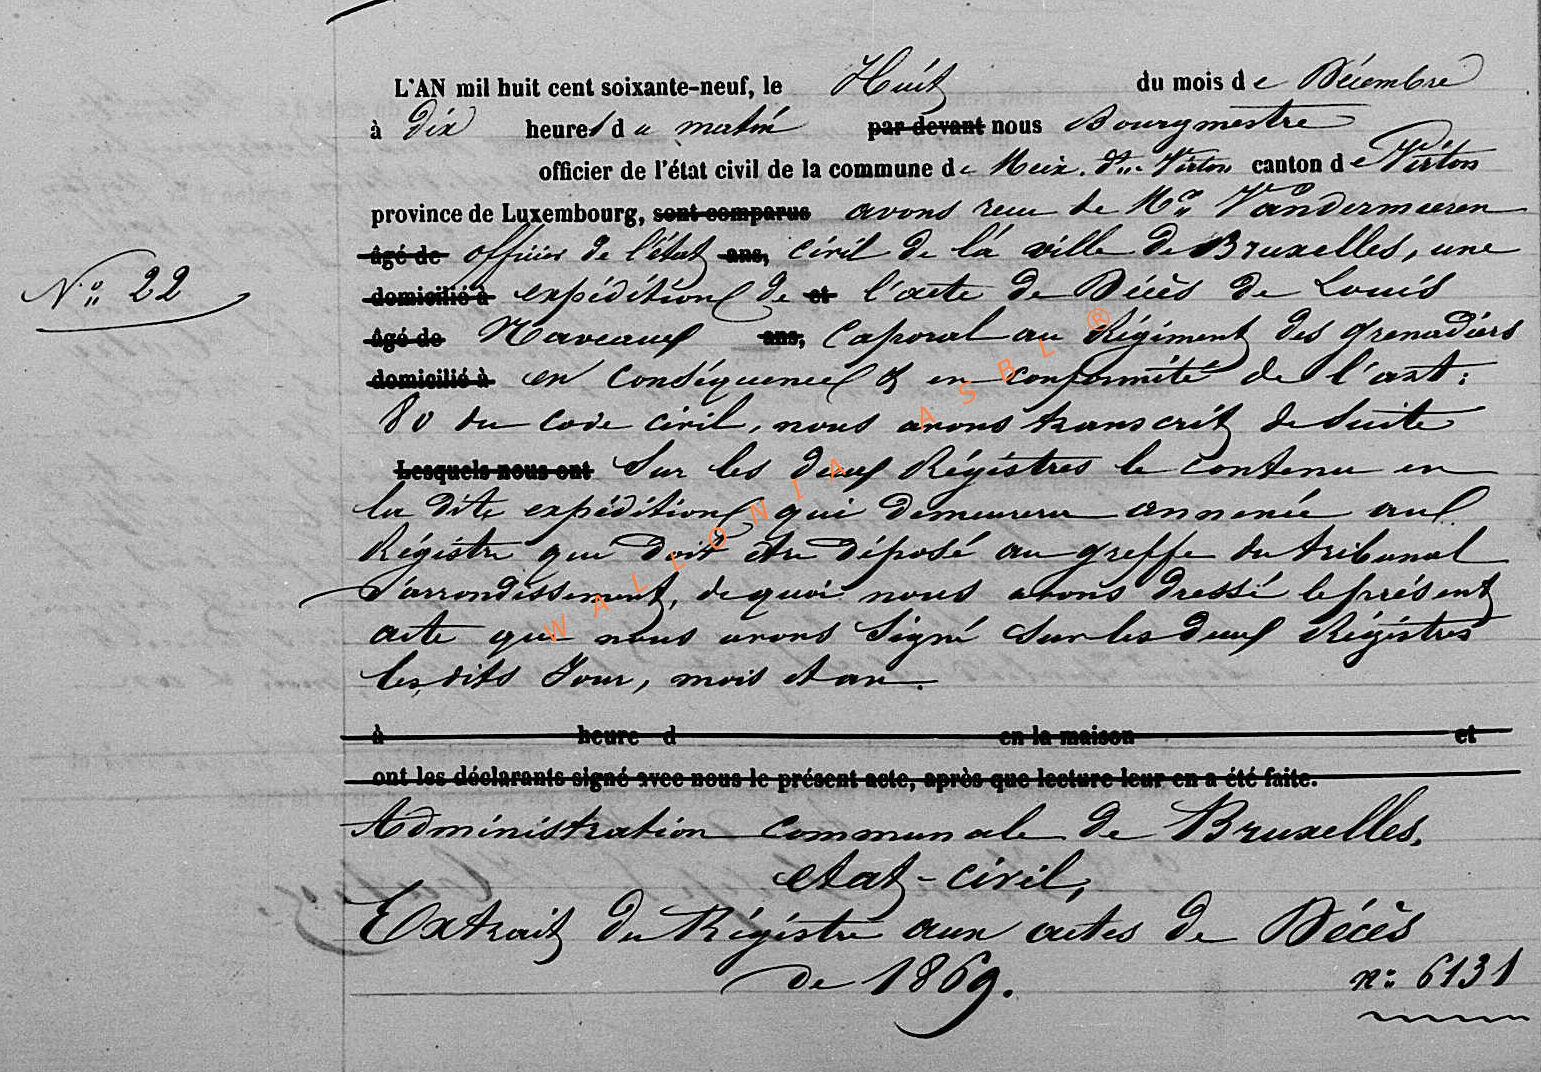 L'AN mil huit cent soixante-neuf, le Huit du mois de Décembre
à Dix heures du matin par devant nous Bourgmestre
officier de l'état civil de la commune de Meix-dt-Virton canton de Virton
province de Luxembourg, sont comparus avons reçu de Mr Vandermeeren
âgé de officier de l'état ans, civil de la ville de Bruxelles, une
N° 22
domicilié à expédition de et l'acte de Décès de Louis
âgé de Naveaux ans, Caporal au Régiment des grenadiers
domicilié à en conséquence & en conformité de l'art:
80 du code civil, nous avons transcrit de suite
Lesquels nous ont sur les deux Régistres le contenu en
la dite expédition, qui demeurera annexée au
Régistre qui doit être déposé au greffe du tribunal
d'arrondissement, de quoi nous avons dressé le présent
acte que nous avons signé sur les deux Régistres
les dits Jour, mois et an.
à heure d en la maison et
ont les déclarants signé avec nous le présent acte, après que lecture leur en a été faite.
Administration communale de Bruxelles,
etat-civil,
Extrait du Régistre aux actes de Décès
de 1869.
n° 6131
WALLONIA ASBL ®